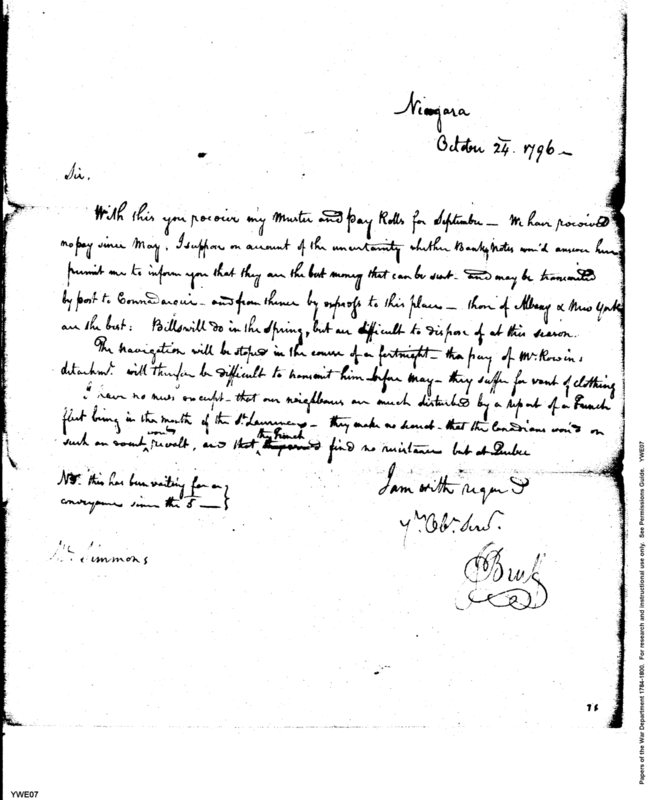 Niagara
October 24. 1796 —
Sir.
With this you receive my Muster and Pay Rolls for September — We have received
no pay since May. I suppose on account of the uncertainty whether Bank Notes wou'd answer here
permit me to inform you that they are the best money that can be sent - and may be transmitted
by post to - and from thence by express to this place — those of Albany & New York
are the best: Bills will do in the Spring, but are difficult to dispose of at this season.
The navigation will be stoped in the course of a fortnight - the pay of Mr.
detachmt. will therefore be difficult to transmit him before May - they suffer for want of clothing
I have no news except - that our neighbours are much disturbed by a report of a French
fleet being in the mouth of the St. Lawrence - they make no secret - that the Canadians wou'd on
such an event, revolt, and that the French find no resistance but at Quebec
NB. this has been waiting for a
conveyance since the 5 —
I am with regard
Yr. Obt. Servt.
Mr. Simmons
75
Papers of the War Department 1784-1800. For research and instructional use only. See Permissions Guide. YWE07
YWE07